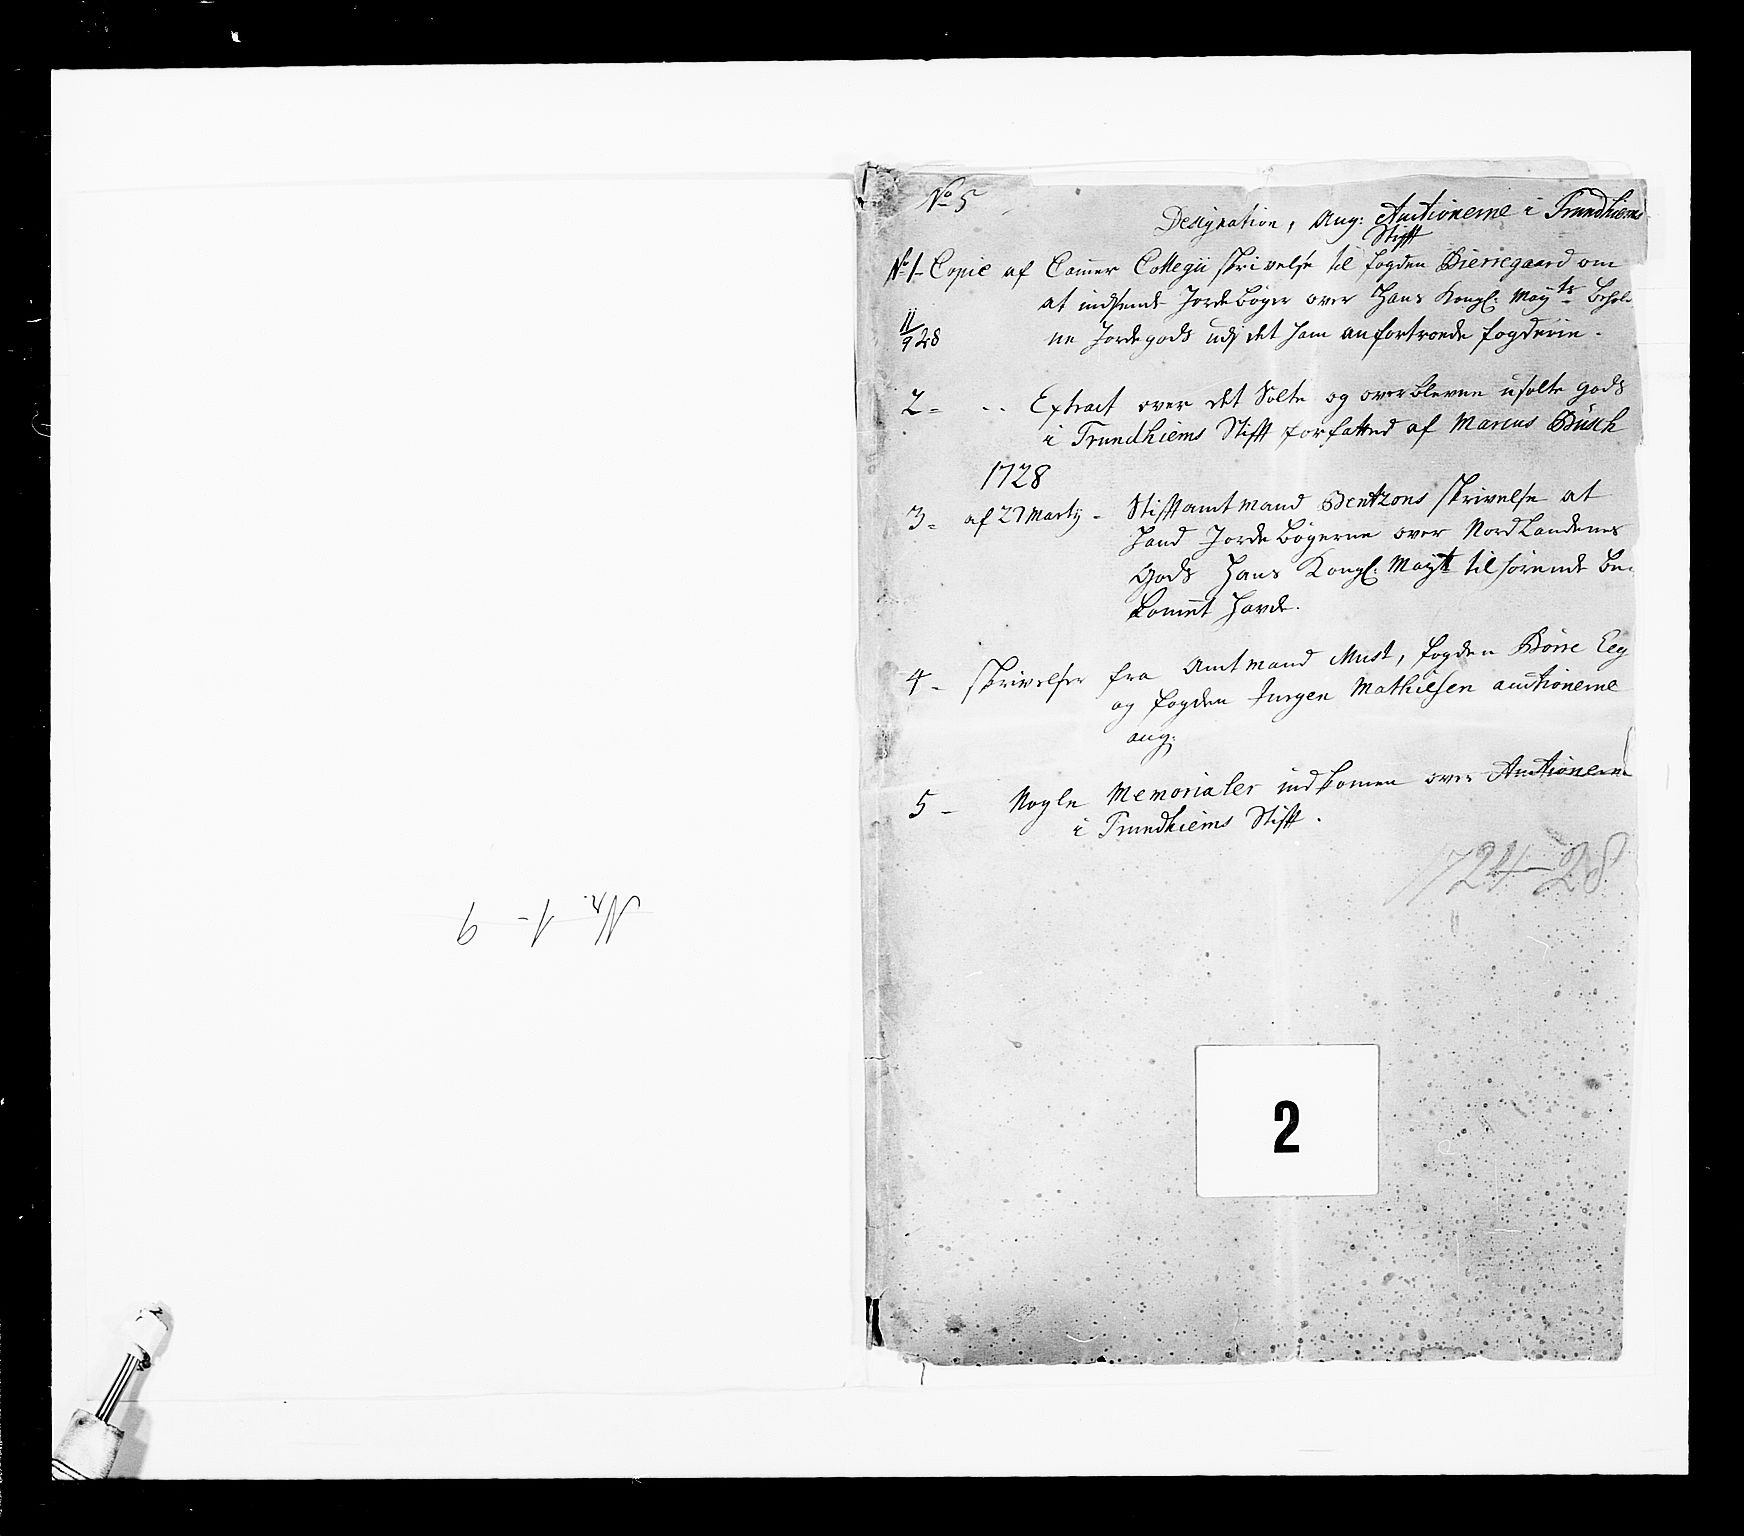 No 5
Designation, Ang: Auctionerne i Trundhiems
Stifft
No 1 - Copie af Camer Collegii skrivelse til fogden Bierregaard om
at indsende Jordebøger over Hans Kongl: Mayts behol-
ne Jordegods udj det ham anfortroede fogderie.
11/9 28
2 - Extract over det Solte og overblevne usolte gods
i Trundhiems Stifft forfatted af Marcus Büsch
1728
3 - af 27 Marty - Stifftamtmand Bentzons skrivelse at
hand Jordebøgerne over Nordlandenes
gods Hans Kongl: Mayt tilhørende be-
kommet havde.
4 - skrivelser fra Amtmand Must, fogden Børre Eeg
og fogden Jurgen Mathiesen auctionerne
ang:
5 - Nogle Memorialer indkomen over Auctionerne
i Trundhiems Stifft.
1724-28
Nr. 1 - 9
2